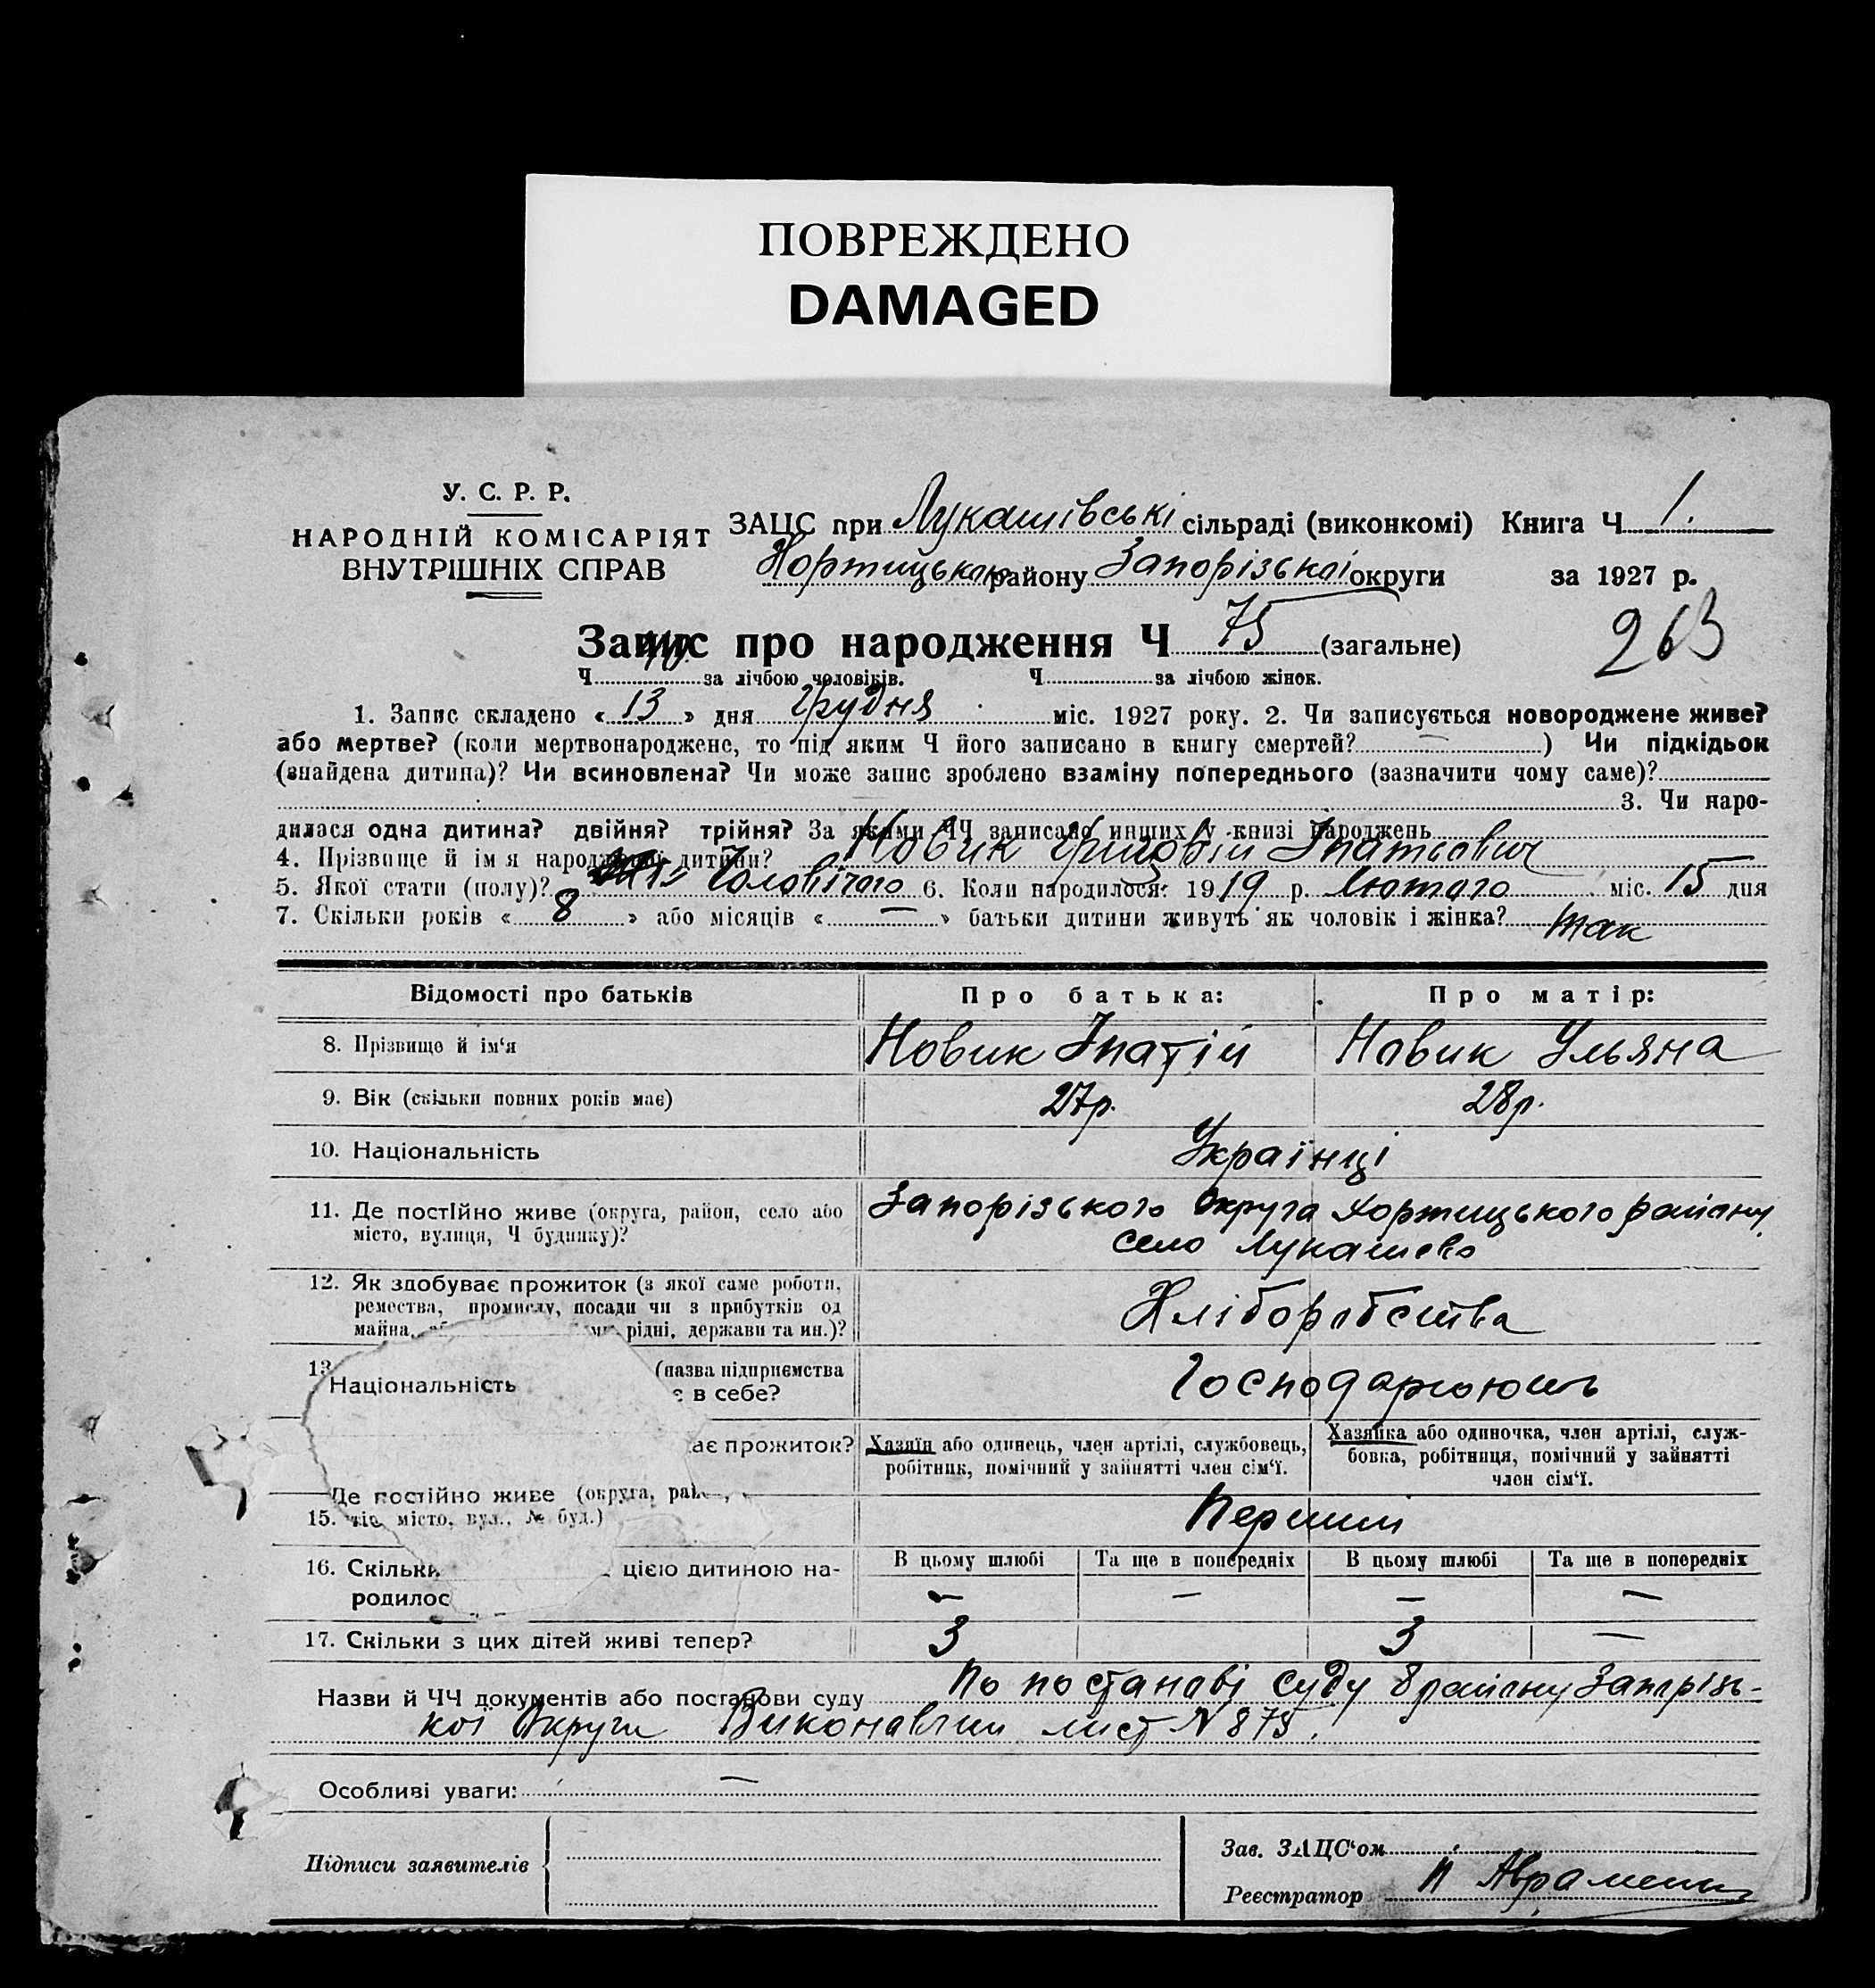 ПОВРЕЖДЕНО
DAMAGED
У. С. Р. Р.
НАРОДНІЙ КОМІСАРІЯТ
ВНУТРІШНІХ СПРАВ
ЗАЦС при Лукашівські сільраді (виконкомі) Книга Ч 1.
Хортицького району Запорізької округи за 1927 р.
263
Запис про народження Ч 75 (загальне)
Ч 40 за лічбою чоловіків. Ч за лічбою жінок.
1. Запис складено « 13 » дня грудня міс. 1927 року. 2. Чи записується новороджене живе?
або мертве? (коли мертвонароджене, то під яким Ч його записано в книгу смертей? — ) Чи підкідьок
(знайдена дитина)? Чи всиновлена? Чи може запис зроблено взаміну попереднього (зазначити чому саме)?
3. Чи наро-
дилася одна дитина? двійня? трійня? За якими ЧЧ записано инших у книзі народжень
4. Прізвище й ім'я народженої дитини? Новик Григорій Іпатьевич
5. Якої стати (полу)? Чоловічого 6. Коли народилося: 1919 р. Лютого міс. 15 дня
7. Скільки років « 8 » або місяців « — » батьки дитини живуть як чоловік і жінка? так
Відомості про батьків Про батька: Про матір:
8. Прізвище й ім‘я Новик Іпатій Новик Ульяна
9. Вік (скільки повних років має) 27р. 28р.
10. Національність Українці
11. Де постійно живе (округа, район, село або Запорізького Округа Хортицького району
місто, вулиця, Ч будинку)? село Лукашево
12. Як здобуває прожиток (з якої саме роботи,
ремества, промислу, посади чи з прибутків од Хліборобства
майна, рідні, держави та ин.)?
13 (назва підприємства
Національність є в себе? Господарюють
ає прожиток? Хазяїн або одинець, член артілі, службовець, Хазяйка або одиночка, член артілі, служ-
робітник, помічний у зайнятті член сім‘ї. бовка, робітниця, помічний у зайнятті
член сім‘ї.
Де постійно живе (округа, рай
15. місто, вул., № буд.) Перший
16. Скільки цією дитиною на- В цьому шлюбі Та ще в попередніх В цьому шлюбі Та ще в попередніх
родилос — — — —
17. Скільки з цих дітей живі тепер? 3 3 —
Назви й ЧЧ документів або постанови суду По постанові суду 8 району Запорізь-
кої Округи Виконавчий лист N 875.
Особливі уваги: —
Підписи заявителів
Зав. ЗАЦС‘ом
Реєстратор П Авраменко